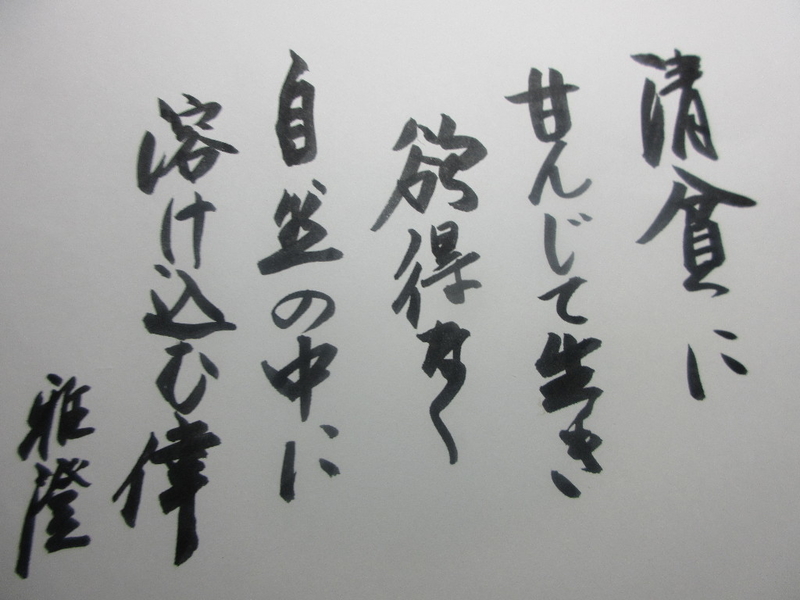 清貧に
甘んじて生き
欲得なく
自然の中に
溶け込む偉
雅澄